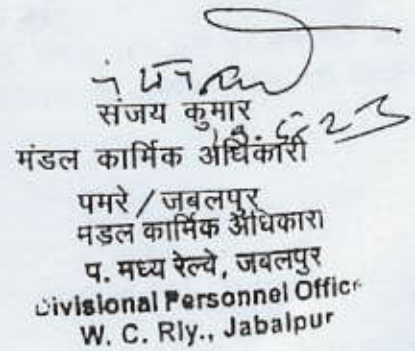 संजय कुमार
मंडल कार्मिक अधिकारी
पमरे / जबलपुर
मडल कार्मिक अधिकारा
प. मध्य रेल्वे, जबलपुर
Divisional Personnel Office
W. C. Rly., Jabalpur